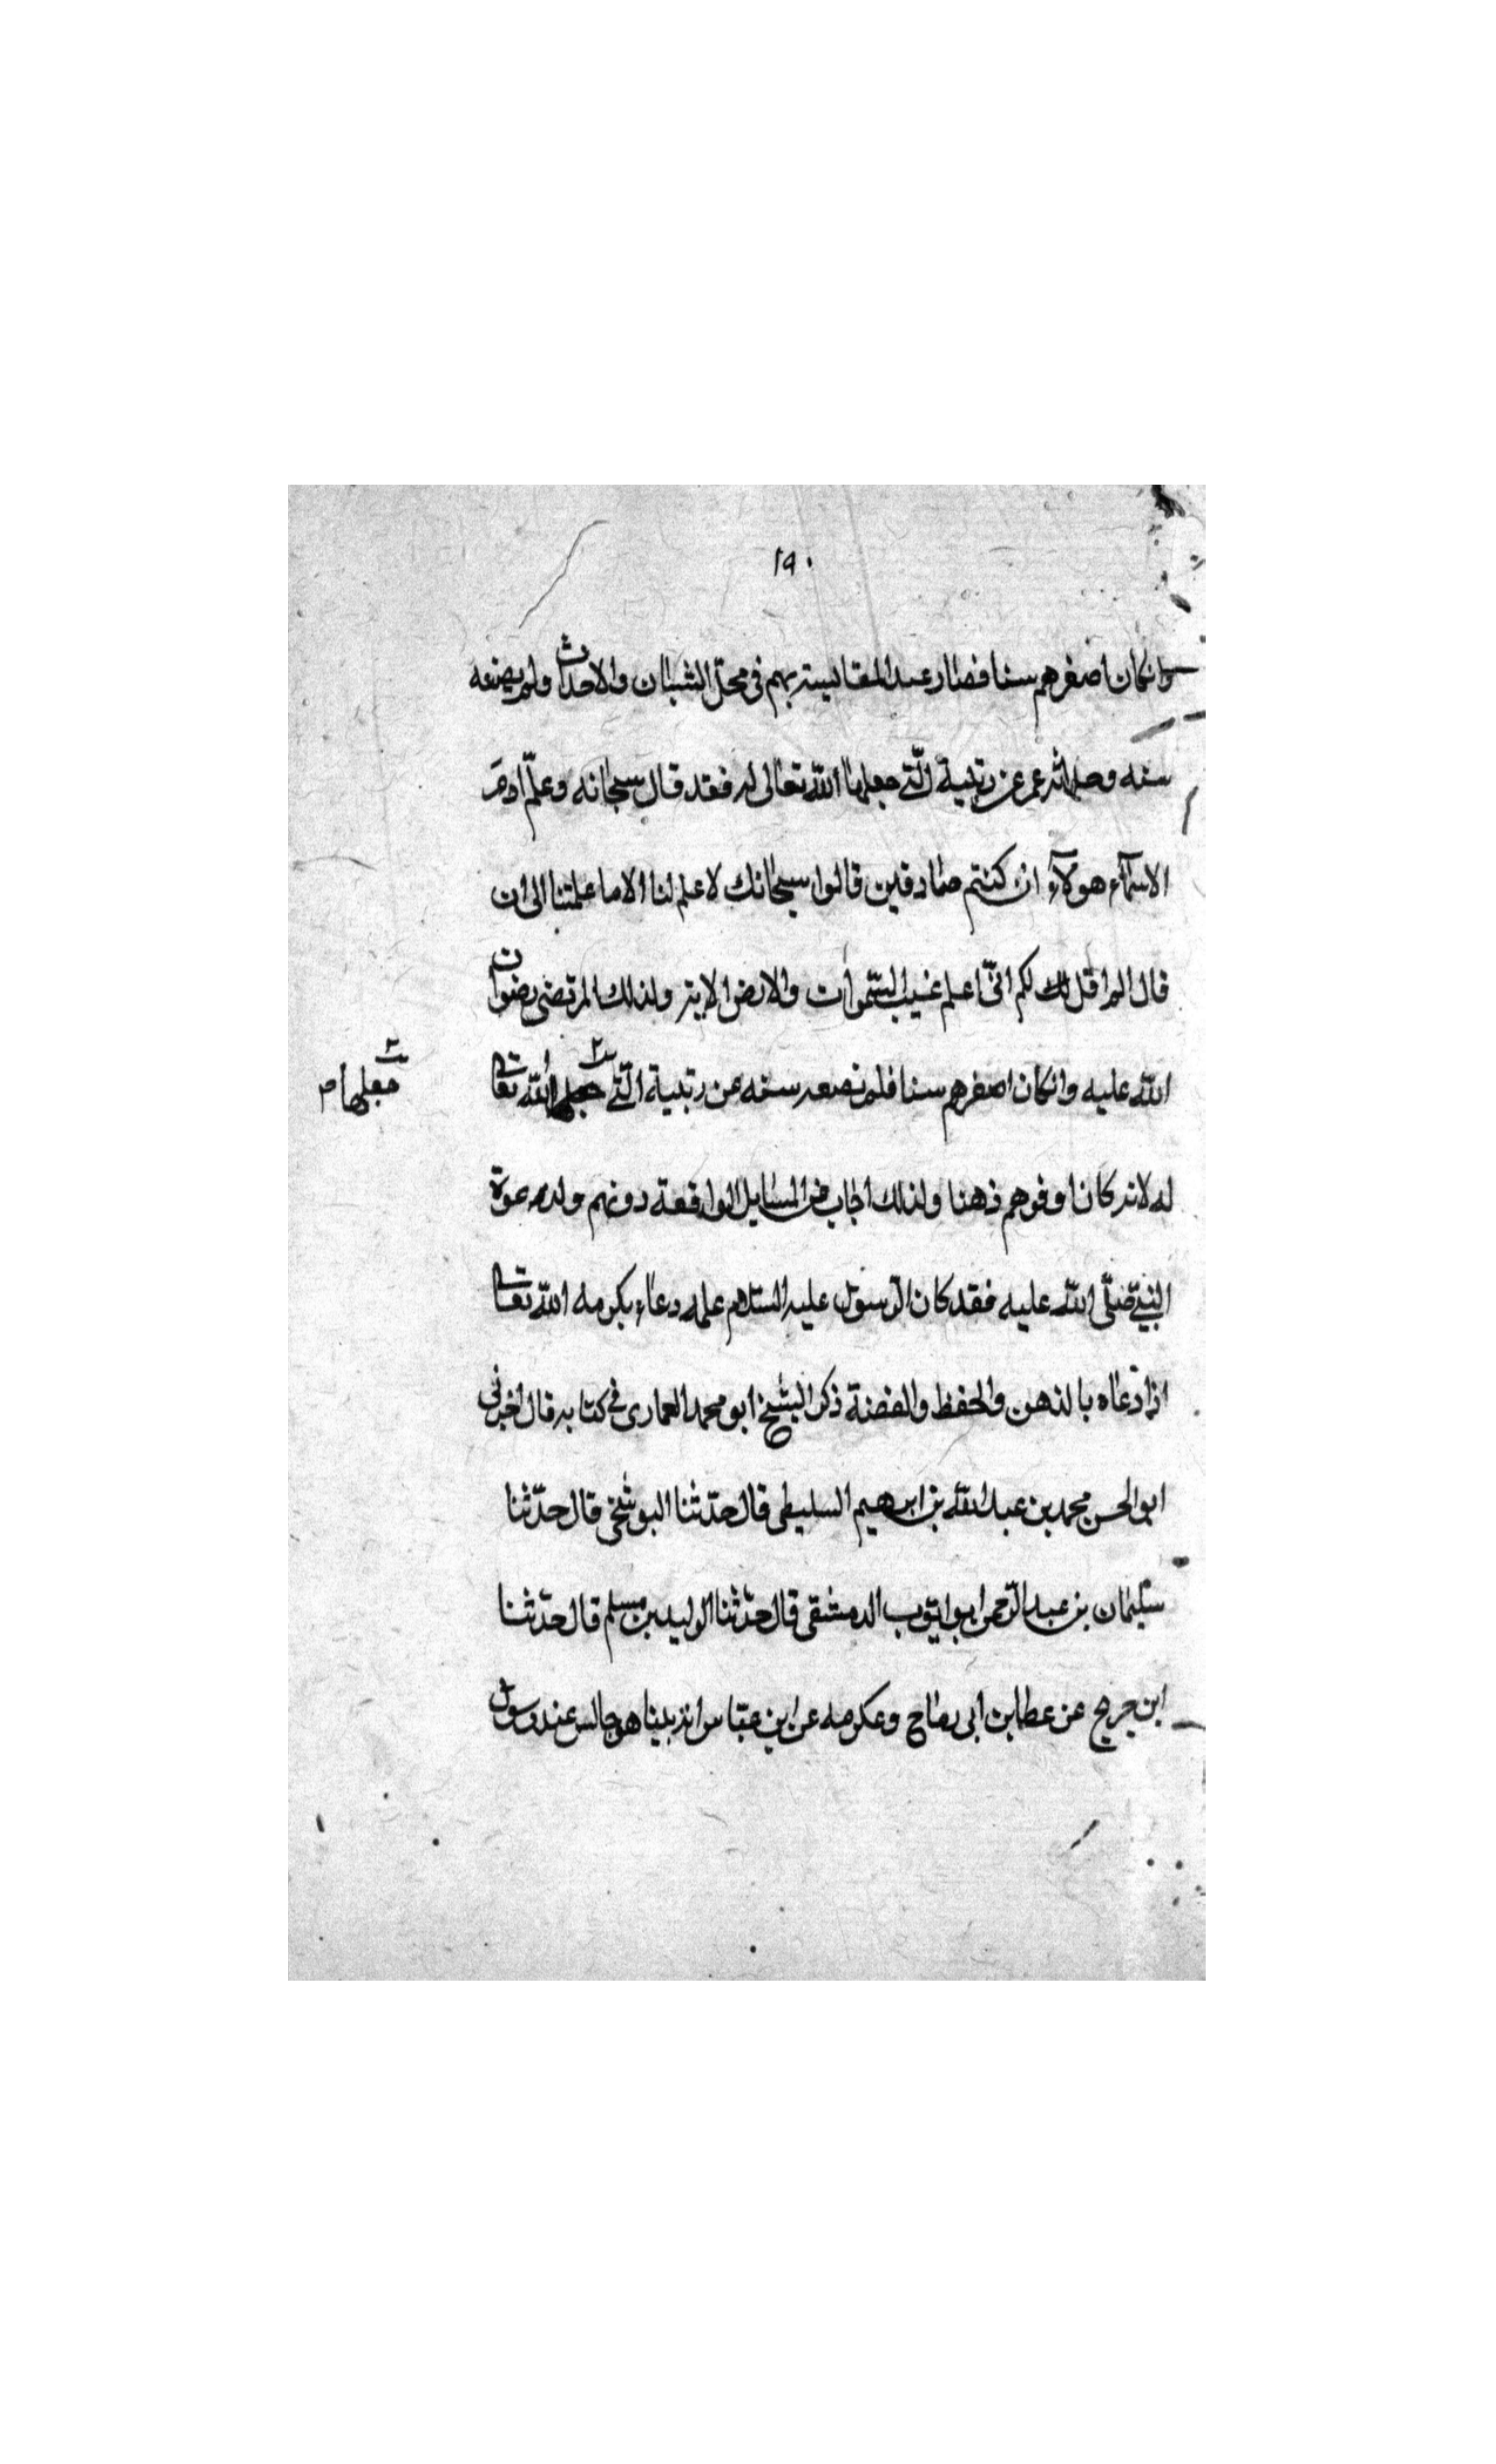 ١٩٠
وانكان اصغرهم سنا فصار عند المقايسة بهم في محلّ الشبان والاحداث ولم يضعه
سنه وحداثة عمره عن رتبة الّتي جعلها اللّه تعالى له فقد قال سبحانه وعلّم ادم
الاسمآء هولآء ان كنتم صادقين قالوا سبحانك لا علم لنا الا ما علمتنا الى ان
قال الم اقل لك لكم انّي اعلم غيب السّموات والارض الاية ولذلك المرتضى رضوان
اللّه عليه وانكان اصغرهم سنا فلم تضعه سنه عن رتبة الّتي جعلها اللّه تعالى
جعلها م
له لانه كان اوفرهم ذهنا ولذلك اجاب في المسايل الواقعة دونهم ولدعوة
النبيّ صلّى اللّه عليه فقد كان الرّسول عليه السّلام علمه دعاء يكرمه اللّه تعالى
اذا دعاه بالذهن والحفظ والفضنة ذكر الشيخ ابو محمد العماري في كتابه قال اخبرني
ابو الحسن محمد بن عبد اللّه بن ابرهيم السليطي قال حدّثنا البوشنجي قال حدّثنا
سليمان بن عبد الرّحمن ابو ايّوب الدمشقي قال حدّثنا الوليد بن مسلم قال حدّثنا
ابن جريج عن عطا بن ابي رباح وعكرمه عن ابن عبّاس انه بينا هو جالس عند رسول